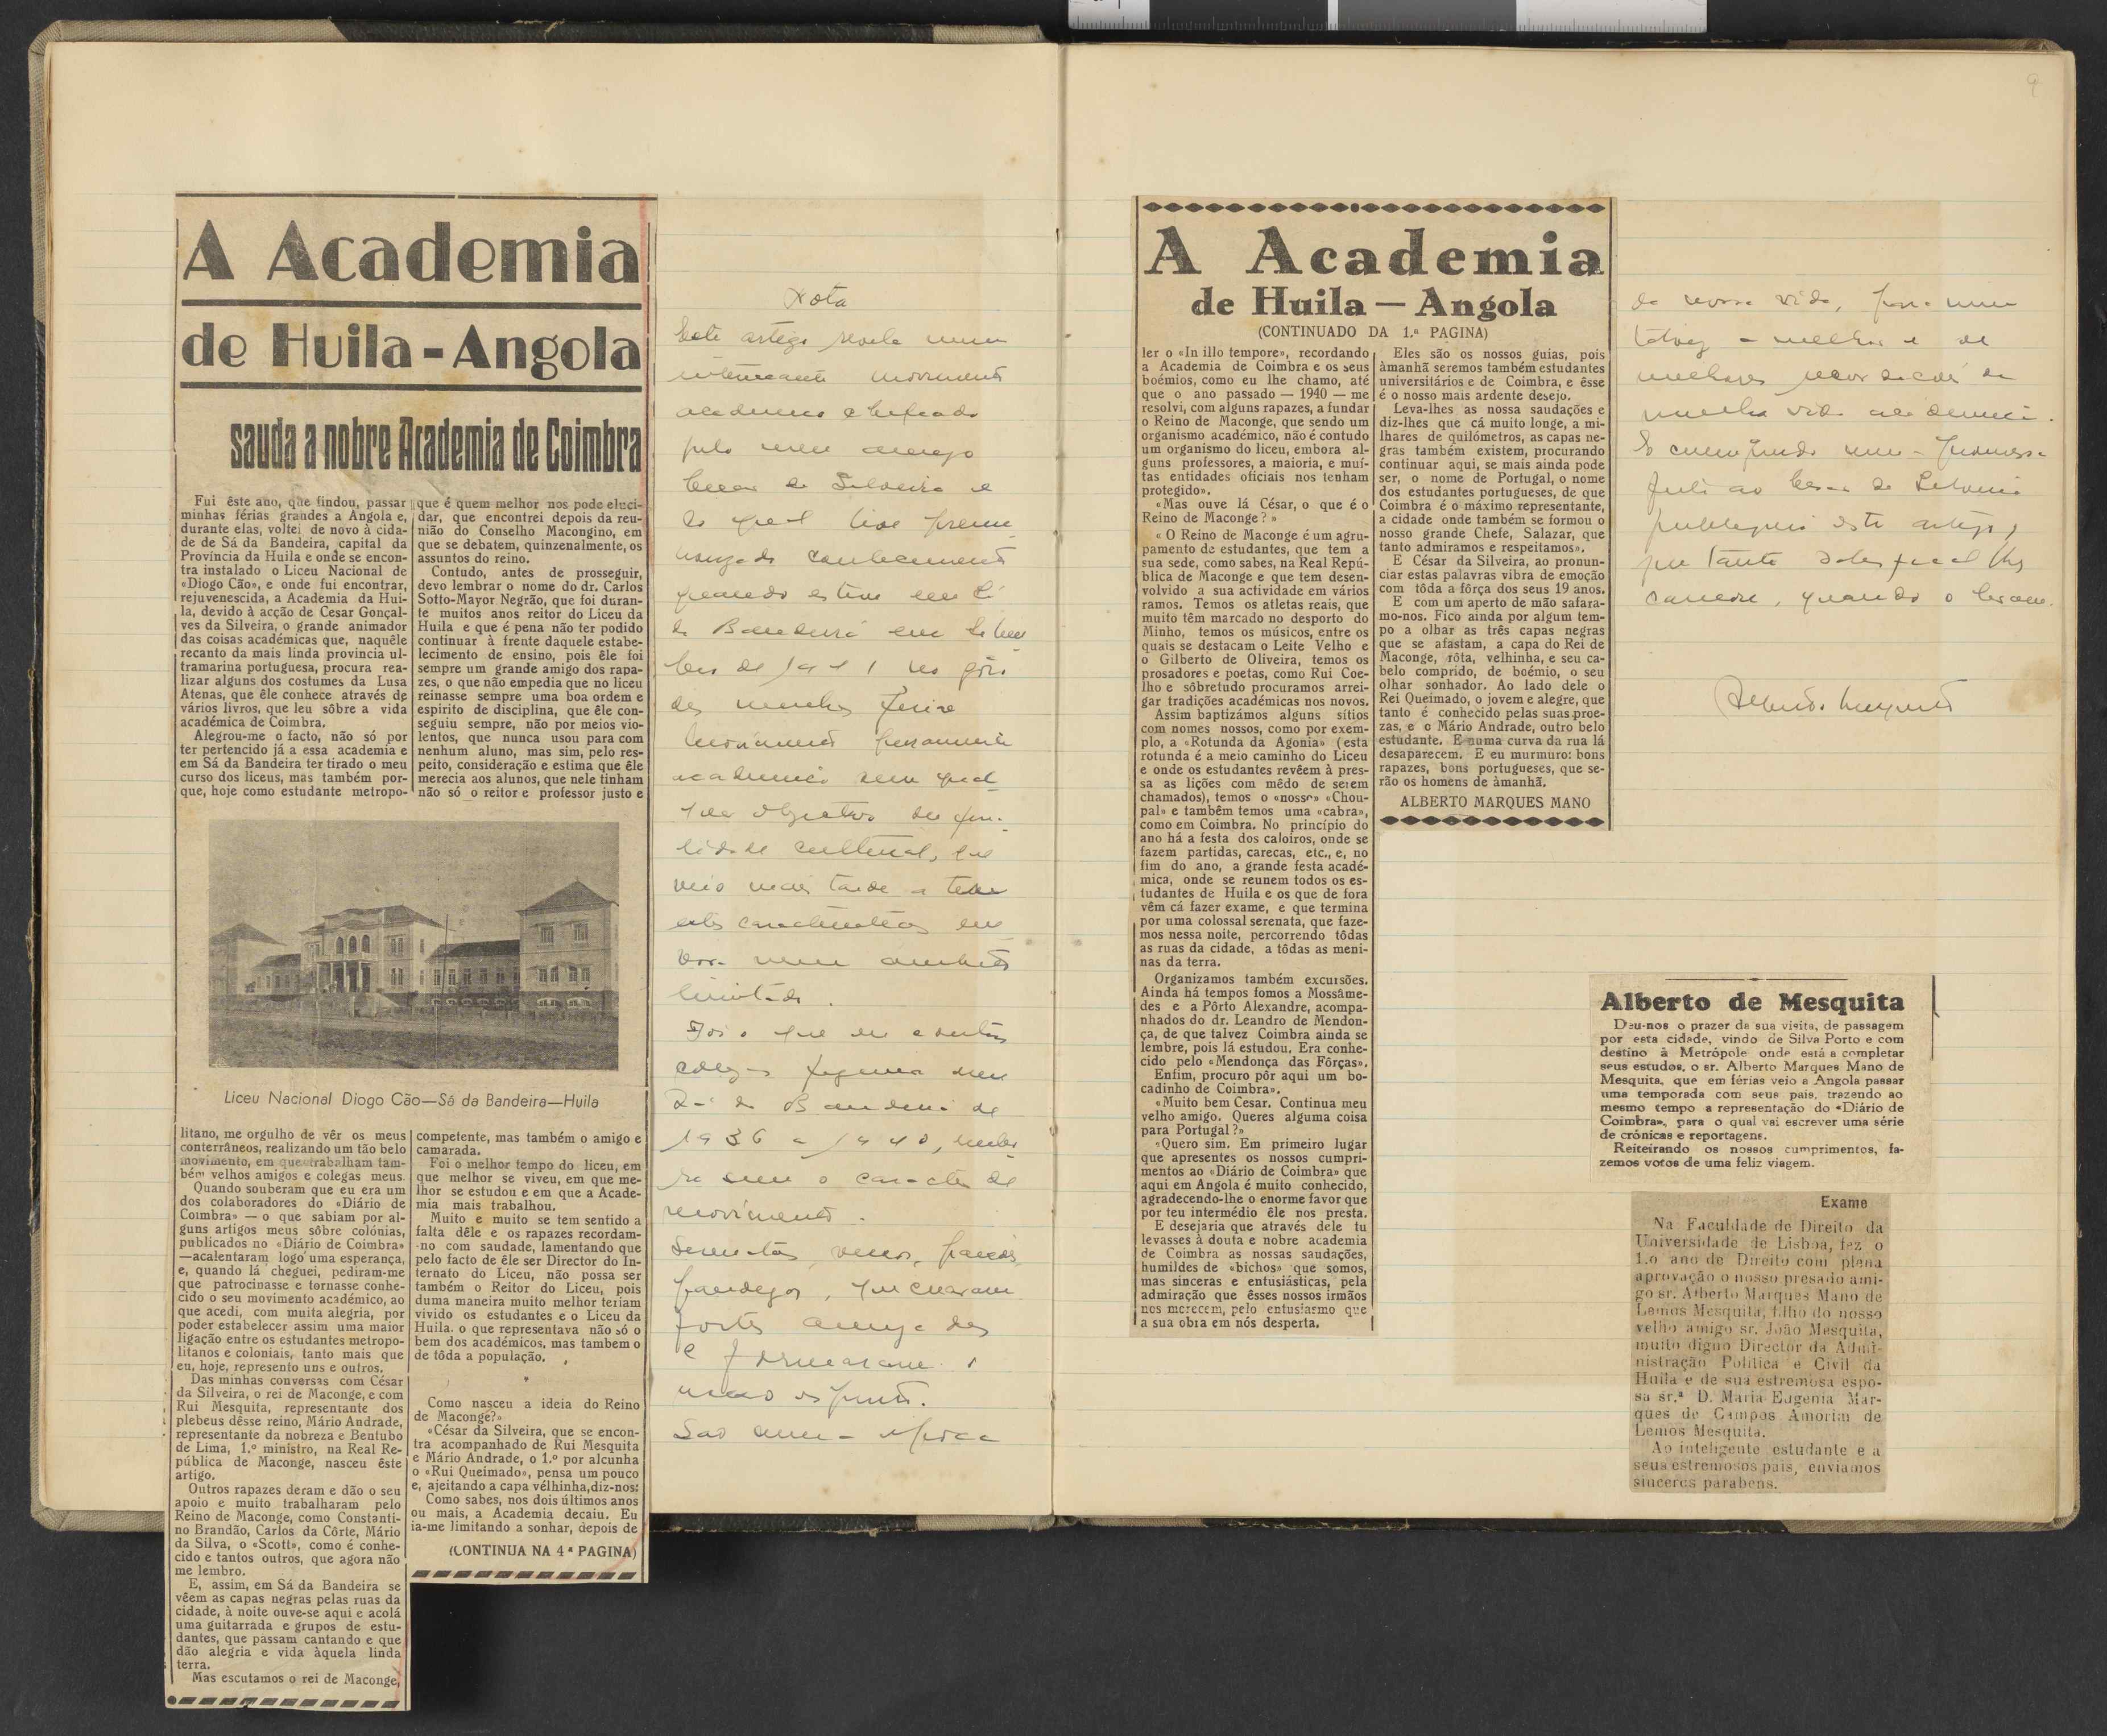 A Academia
de Huila - Angola
sauda a nobre Academia de Coimbra
Fui êste ano, que findou, passar
minhas férias grandes a Angola e,
durante elas, voltei de novo à cida-
de de Sá da Bandeira, capital da
Província da Huila e onde se encon-
tra instalado o Liceu Nacional de
«Diogo Cão», e onde fui encontrar,
rejuvenescida, a Academia da Hui-
la, devido à acção de Cesar Gonçal-
ves da Silveira, o grande animador
das coisas académicas que, naquêle
recanto da mais linda provincia ul-
tramarina portuguesa, procura rea-
lizar alguns dos costumes da Lusa
Atenas, que êle conhece através de
vários livros, que leu sôbre a vida
académica de Coimbra.
Alegrou-me o facto, não só por
ter pertencido já a essa academia e
em Sá da Bandeira ter tirado o meu
curso dos liceus, mas também por-
que, hoje como estudante metropo-
Liceu Nacional Diogo Cão—Sá da Bandeira—Huila
litano, me orgulho de vêr os meus
conterrâneos, realizando um tão belo
movimento, em que trabalham tam-
bém velhos amigos e colegas meus.
Quando souberam que eu era um
dos colaboradores do «Diário de
Coimbra» — o que sabiam por al-
guns artigos meus sôbre colónias,
publicados no «Diário de Coimbra»
—acalentaram logo uma esperança,
e, quando lá cheguei, pediram-me
que patrocinasse e tornasse conhe-
cido o seu movimento académico, ao
que acedi, com muita alegria, por
poder estabelecer assim uma maior
ligação entre os estudantes metropo-
litanos e coloniais, tanto mais que
eu, hoje, represento uns e outros.
Das minhas conversas com César
da Silveira, o rei de Maconge, e com
Rui Mesquita, representante dos
plebeus dêsse reino, Mário Andrade,
representante da nobreza e Bentubo
de Lima, 1.º ministro, na Real Re-
pública de Maconge, nasceu êste
artigo.
Outros rapazes deram e dão o seu
apoio e muito trabalharam pelo
Reino de Maconge, como Constanti-
no Brandão, Carlos da Côrte, Mário
da Silva, o «Scott», como é conhe-
cido e tantos outros, que agora não
me lembro.
E, assim, em Sá da Bandeira se
vêem as capas negras pelas ruas da
cidade, à noite ouve-se aqui e acolá
uma guitarrada e grupos de estu-
dantes, que passam cantando e que
dão alegria e vida àquela linda
terra.
Mas escutamos o rei de Maconge,
que é quem melhor nos pode eluci-
dar, que encontrei depois da reu-
nião do Conselho Macongino, em
que se debatem, quinzenalmente, os
assuntos do reino.
Contudo, antes de prosseguir,
devo lembrar o nome do dr. Carlos
Sotto-Mayor Negrão, que foi duran-
te muitos anos reitor do Liceu da
Huila e que é pena não ter podido
continuar à frente daquele estabe-
lecimento de ensino, pois êle foi
sempre um grande amigo dos rapa-
zes, o que não empedia que no liceu
reinasse sempre uma boa ordem e
espirito de disciplina, que êle con-
seguiu sempre, não por meios vio-
lentos, que nunca usou para com
nenhum aluno, mas sim, pelo res-
peito, consideração e estima que êle
merecia aos alunos, que nele tinham
não só o reitor e professor justo e
competente, mas também o amigo e
camarada.
Foi o melhor tempo do liceu, em
que melhor se viveu, em que me-
lhor se estudou e em que a Acade-
mia mais trabalhou.
Muito e muito se tem sentido a
falta dêle e os rapazes recordam-
-no com saudade, lamentando que
pelo facto de êle ser Director do In-
ternato do Liceu, não possa ser
também o Reitor do Liceu, pois
duma maneira muito melhor teriam
vivido os estudantes e o Liceu da
Huila. o que representava não só o
bem dos académicos, mas tambem o
de tôda a população.
*
Como nasceu a ideia do Reino
de Maconge?»
«César da Silveira, que se encon-
tra acompanhado de Rui Mesquita
e Mário Andrade, o 1.º por alcunha
o «Rui Queimado», pensa um pouco
e, ajeitando a capa vélhinha, diz-nos:
Como sabes, nos dois últimos anos
ou mais, a Academia decaiu. Eu
ia-me limitando a sonhar, depois de
(CONTINUA NA 4.ª PAGINA)
Nota
Este artigo revela um
interessante movimento
academico chefiado
pelo meu amigo
Cesar da Silveira e
do qual tive
conhecimento
quando estive em Sá
da Bandeira em
de 1941 no gôzo
das minhas ferias
Movimento puramente
academico sem qual-
quer objectivo de fina-
lidade cultural, que
veio mais tarde a ter
num ambiente
limitado.
Foi o que eu e outros
colegas fizemos em
Sá da Bandeira de
1936 a 1940, embo-
ra sem o caracter de
movimento.
Serenatas,
pandegas, que criaram
fortes amizades
e formaram o
nosso espirito.
São uma época
9
A Academia
de Huila — Angola
(CONTINUADO DA 1.ª PAGINA)
ler o «In illo tempore», recordando
a Academia de Coimbra e os seus
boémios, como eu lhe chamo, até
que o ano passado — 1940 — me
resolvi, com alguns rapazes, a fundar
o Reino de Maconge, que sendo um
organismo académico, não é contudo
um organismo do liceu, embora al-
guns professores, a maioria, e muí-
tas entidades oficiais nos tenham
protegido».
«Mas ouve lá César, o que é o
Reino de Maconge?»
«O Reino de Maconge é um agru-
pamento de estudantes, que tem a
sua sede, como sabes, na Real Repú-
blica de Maconge e que tem desen-
volvido a sua actividade em vários
ramos. Temos os atletas reais, que
muito têm marcado no desporto do
Minho, temos os músicos, entre os
quais se destacam o Leite Velho e
o Gilberto de Oliveira, temos os
prosadores e poetas, como Rui Coe-
lho e sôbretudo procuramos arrei-
gar tradições académicas nos novos.
Assim baptizámos alguns sítios
com nomes nossos, como por exem-
plo, a «Rotunda da Agonia» (esta
rotunda é a meio caminho do Liceu
e onde os estudantes revêem à pres-
sa as lições com mêdo de serem
chamados), temos o «nosso» «Chou-
pal» e também temos uma «cabra»,
como em Coimbra. No princípio do
ano há a festa dos caloiros, onde se
fazem partidas, carecas, etc., e, no
fim do ano, a grande festa acadé-
mica, onde se reunem todos os es-
tudantes de Huila e os que de fora
vêm cá fazer exame, e que termina
por uma colossal serenata, que faze-
mos nessa noite, percorrendo tôdas
as ruas da cidade, a tôdas as meni-
nas da terra.
Organizamos também excursões.
Ainda há tempos fomos a Mossâme-
des e a Pôrto Alexandre, acompa-
nhados do dr. Leandro de Mendon-
ça, de que talvez Coimbra ainda se
lembre, pois lá estudou. Era conhe-
cido pelo «Mendonça das Fôrças».
Enfim, procuro pôr aqui um bo-
cadinho de Coimbra».
«Muito bem Cesar. Continua meu
velho amigo. Queres alguma coisa
para Portugal?»
«Quero sim. Em primeiro lugar
que apresentes os nossos cumpri-
mentos ao «Diário de Coimbra» que
aqui em Angola é muito conhecido,
agradecendo-lhe o enorme favor que
por teu intermédio êle nos presta.
E desejaria que através dele tu
levasses à douta e nobre academia
de Coimbra as nossas saudações,
humildes de «bichos» que somos,
mas sinceras e entusiásticas, pela
admiração que êsses nossos irmãos
nos merecem, pelo entusiasmo que
a sua obra em nós desperta.
Eles são os nossos guias, pois
àmanhã seremos também estudantes
universitários e de Coimbra, e êsse
é o nosso mais ardente desejo.
Leva-lhes as nossa saudações e
diz-lhes que cá muito longe, a mi-
lhares de quilómetros, as capas ne-
gras também existem, procurando
continuar aqui, se mais ainda pode
ser, o nome de Portugal, o nome
dos estudantes portugueses, de que
Coimbra é o máximo representante,
a cidade onde também se formou o
nosso grande Chefe, Salazar, que
tanto admiramos e respeitamos».
E César da Silveira, ao pronun-
ciar estas palavras vibra de emoção
com tôda a fôrça dos seus 19 anos.
E com um aperto de mão safara-
mo-nos. Fico ainda por algum tem-
po a olhar as três capas negras
que se afastam, a capa do Rei de
Maconge, rôta, velhinha, e seu ca-
belo comprido, de boémio, o seu
olhar sonhador. Ao lado dele o
Rei Queimado, o jovem e alegre, que
tanto é conhecido pelas suas proe-
zas, e o Mário Andrade, outro belo
estudante. E numa curva da rua lá
desaparecem. E eu murmuro: bons
rapazes, bons portugueses, que se-
rão os homens de àmanhã.
ALBERTO MARQUES MANO
da nossa vida, para mim
talvez a melhor e de
melhores recordações da
minha vida academica.
E cumprindo uma promessa
feita ao Cesar da Silveira
publiquei este artigo,
Alberto Mesquita
Alberto de Mesquita
Deu-nos o prazer da sua visita, de passagem
por esta cidade, vindo de Silva Porto e com
destino à Metrópole onde está a completar
seus estudos, o sr. Alberto Marques Mano de
Mesquita, que em férias veio a Angola passar
uma temporada com seus pais, trazendo ao
mesmo tempo a representação do «Diário de
Coimbra», para o qual vai escrever uma série
de crónicas e reportagens.
Reiteirando os nossos cumprimentos, fa-
zemos votos de uma feliz viagem.
Exame
Na Faculdade de Direito da
Universidade de Lisboa, fez o
1.o ano de Direito com plena
aprovação o nosso presado ami-
go sr. Alberto Marques Mano de
Lemos Mesquita, filho do nosso
velho amigo sr. João Mesquita,
muito digno Director da Admi-
nistração Politica e Civil da
Huila e de sua estremosa espo-
sa sr.ª D. Maria Eugenia Mar-
ques de Campos Amorim de
Lemos Mesquita.
Ao inteligente estudante e a
seus estremosos pais, enviamos
sinceros parabens.